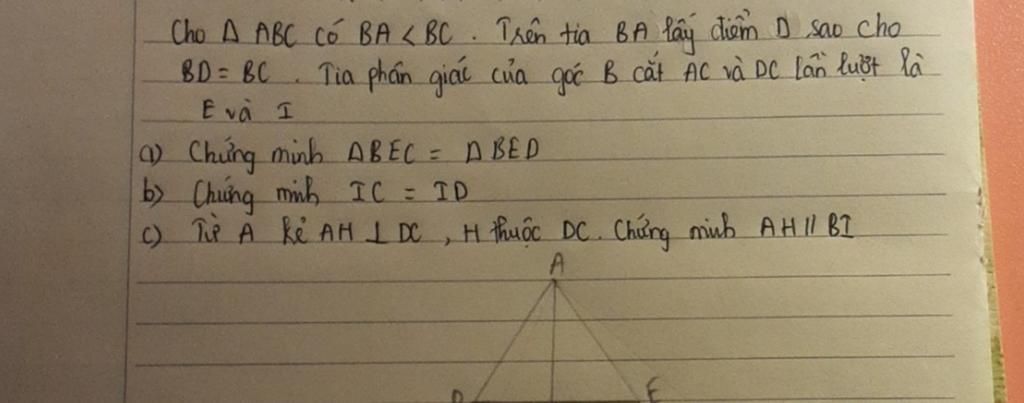 Cho Δ ABC có BA < BC. Trên tia BA lấy điểm D sao cho
BD = BC. Tia phân giác của góc B cắt AC và DC lần lượt là
E và I
a) Chứng minh ΔBEC = ΔBED
b) Chứng minh IC = ID
c) Từ A kẻ AH ⊥ DC, H thuộc DC. Chứng minh AH // BI
A
D E